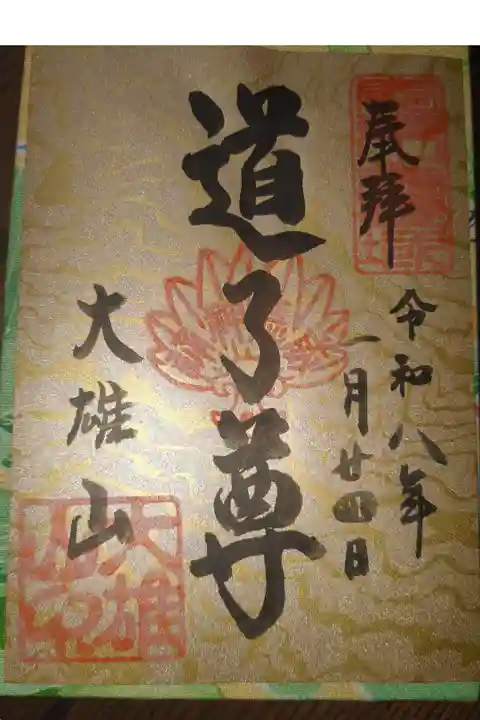 奉拝
令和八年
一月廿四日
道了尊
大雄山